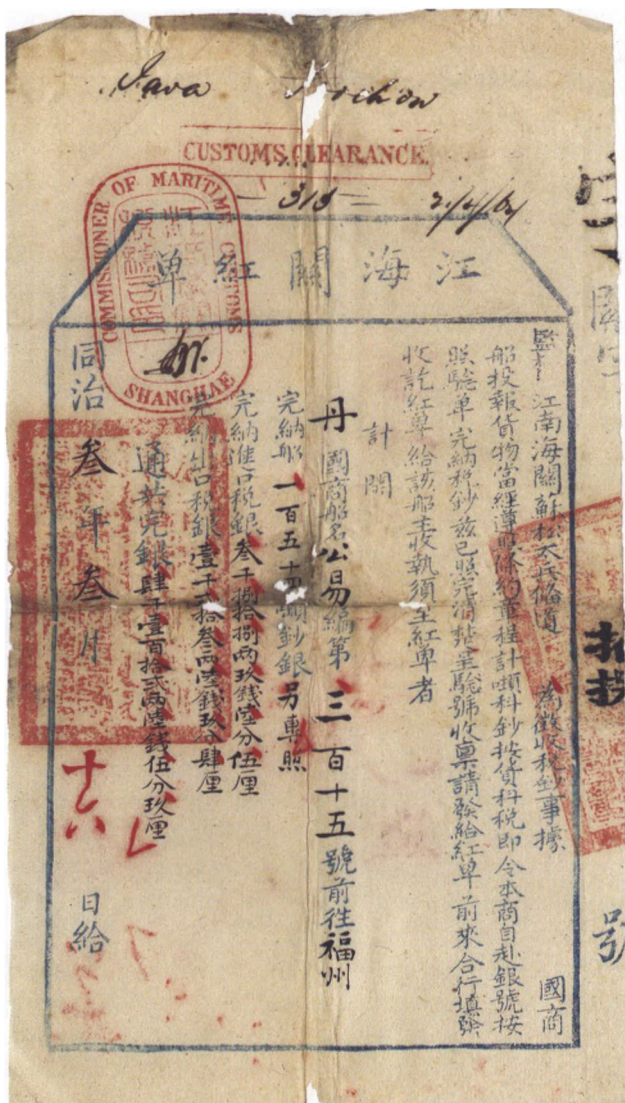 Java Foochow
CUSTOMS CLEARANCE.
315
COMMISSIONER OF MARITIME CUSTOMS
SHANGHAE
江海關紅單
江南海關蘇松太兵備道 為徵收稅鈔事據 國商
船投報貨物當經遵照條約章程計噸科鈔按貨科稅即令本商自赴銀號按
照驗單完納稅鈔茲已照完清 號收 請發給紅單前來合行填發
收訖紅單給該船主收執須至紅單者
計開
丹國商船名公易編第三百十五號前往福州
完納船 一百五十 噸鈔銀另專照
完納進口稅銀叁千 拾捌兩玖錢陸分伍厘
完納出口稅銀壹千 拾叁兩 錢玖分肆厘
通共完銀肆千壹百拾 兩 錢伍分玖厘
同治叁年叁月十六日給
號